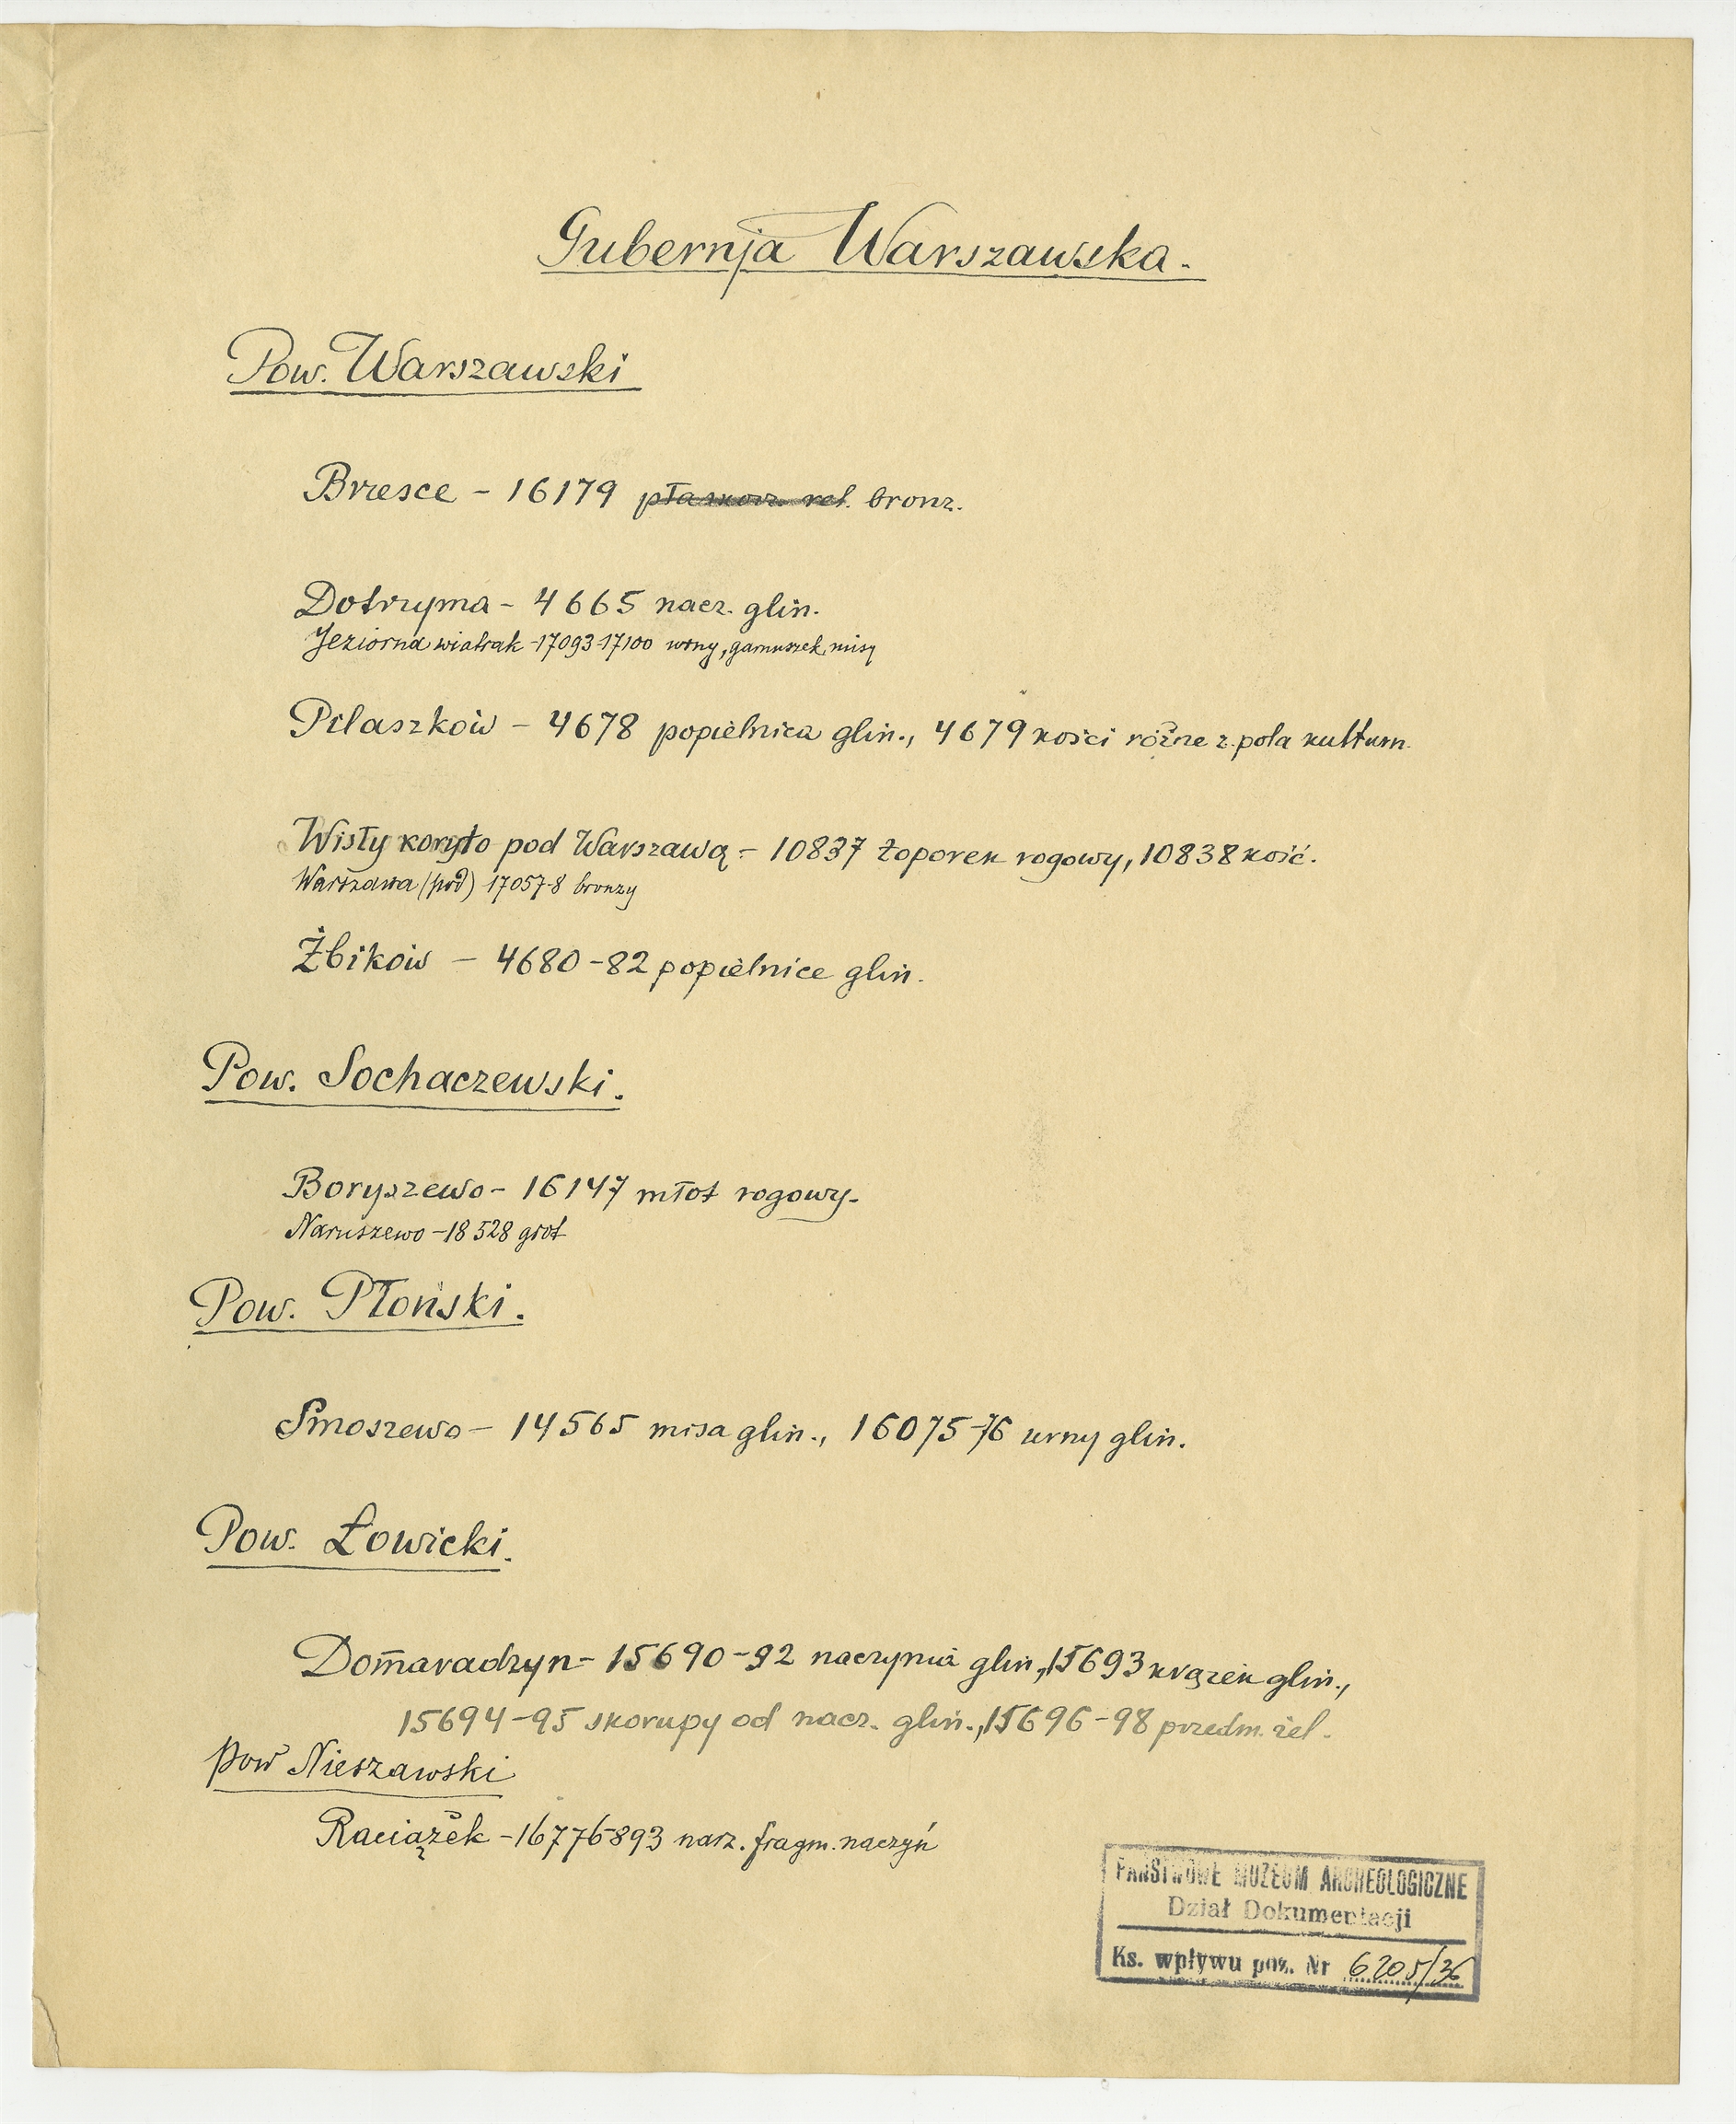 Gubernja Warszawska.
Pow. Warszawski
Bresce - 16179 bronz.
Dotrzyma - 4665 nacz. glin.
Jeziorna wiatrak - 17093-17100 urny, garnuszek, misy
Pilaszków - 4678 popielnica glin., 4679 kości różne z pola kulturn.
Wisły koryto pod Warszawą - 10837 toporek rogowy, 10838 kość.
Warszawa (pod) 17057-8 bronzy
Żbików - 4680-82 popielnice glin.
Pow. Sochaczewski.
Boryszewo - 16147 młot rogowy.
Naruszewo - 18528 grot
Pow. Płoński.
Smoszewo - 14565 misa glin., 16075-76 urny glin.
Pow. Łowicki.
Domaradzyn - 15690-92 naczynia glin., 15693 krążek glin.,
15694-95 skorupy od nacz. glin., 15696-98 przedm. żel.
Pow Nieszawski
Raciążek - 16776-893 narz. fragm. naczyń
PAŃSTWOWE MUZEUM ARCHEOLOGICZNE
Dział Dokumentacji
Ks. wpływu poz. Nr 6205/36